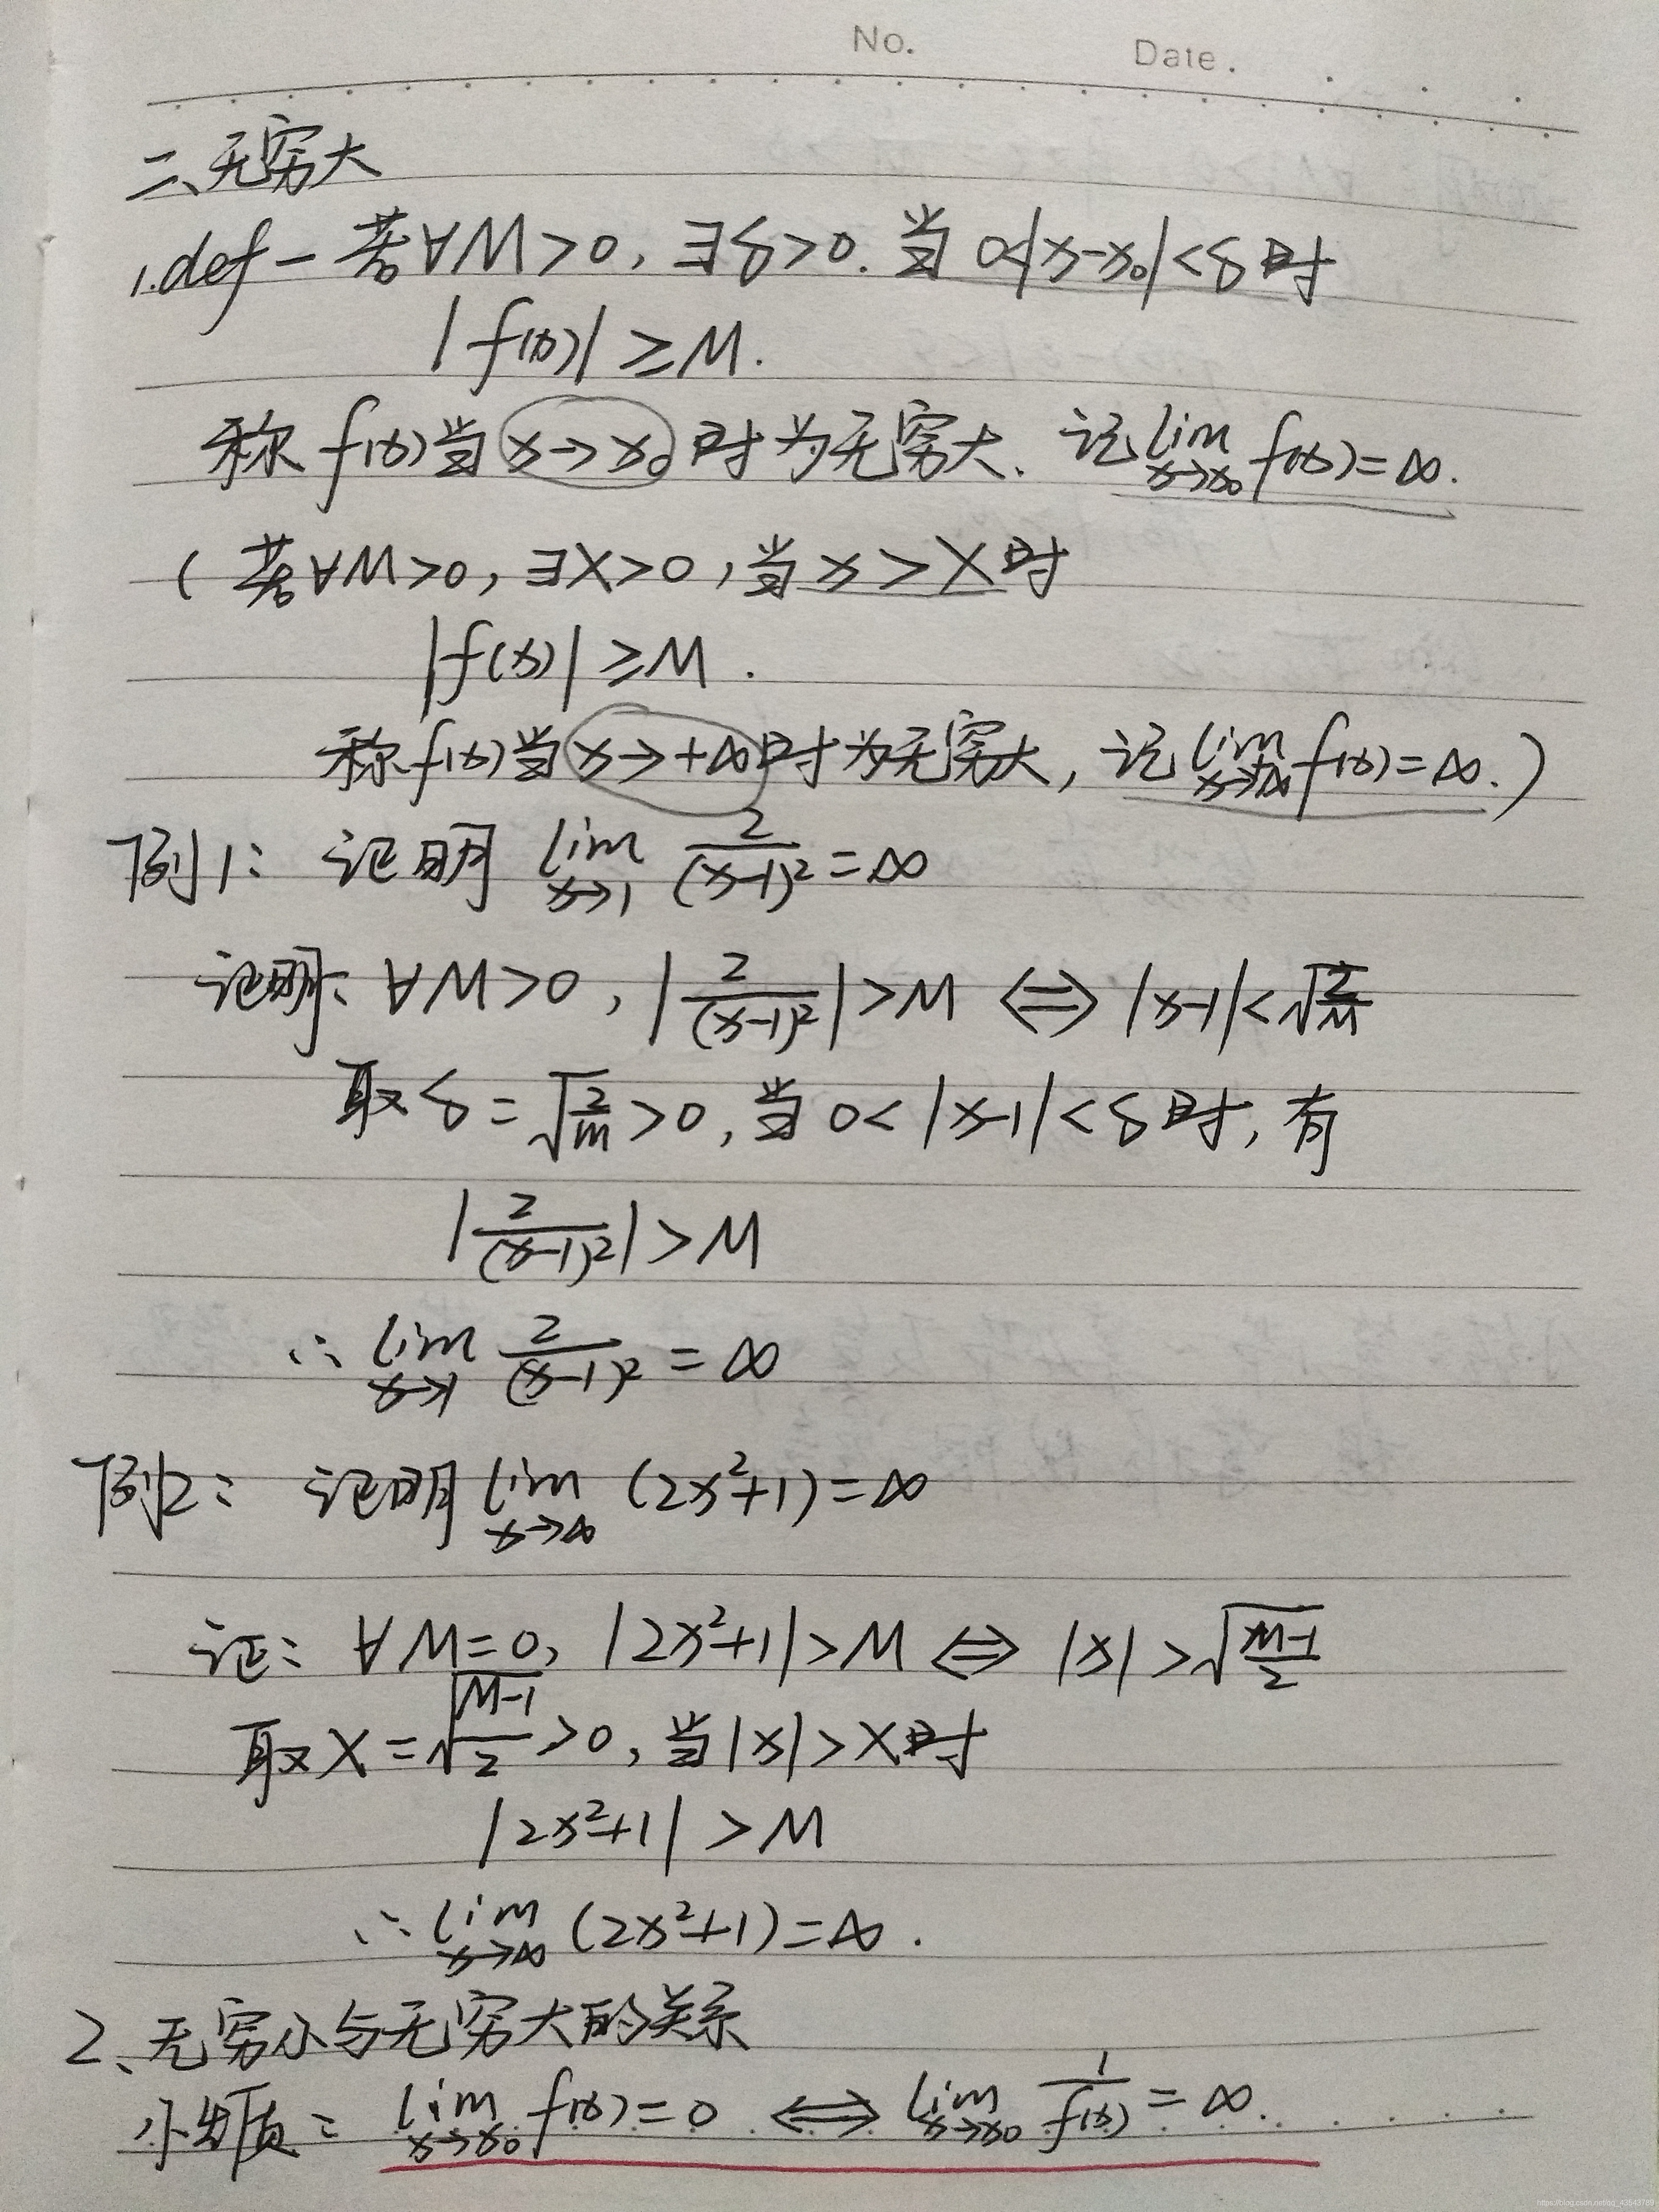 No. Date.
二、无穷大
1.def - 若∀M>0, ∃δ>0. 当 0<|x-x₀|<δ时
|f(x)|≥M.
称f(x)当x→x₀时为无穷大. 记lim x→x₀ f(x)=∞.
(若∀M>0, ∃X>0, 当x>X时
|f(x)|≥M.
称f(x)当x→+∞时为无穷大, 记lim x→+∞ f(x)=∞.)
例1: 证明 lim x→1 2/(x-1)²=∞
证明: ∀M>0, |2/(x-1)²|>M ⇔ |x-1|<√(2/M)
取δ=√(2/m)>0, 当0<|x-1|<δ时, 有
|2/(x-1)²|>M
∴ lim x→1 2/(x-1)²=∞
例2: 证明lim x→∞ (2x²+1)=∞
证: ∀M=0, |2x²+1|>M ⇔ |x|>√((M-1)/2)
取X=√((M-1)/2)>0, 当|x|>X时
|2x²+1|>M
∴ lim x→∞ (2x²+1)=∞.
2、无穷小与无穷大的关系
小性质: lim x→x₀ f(x)=0 ⇔ lim x→x₀ 1/f(x)=∞.